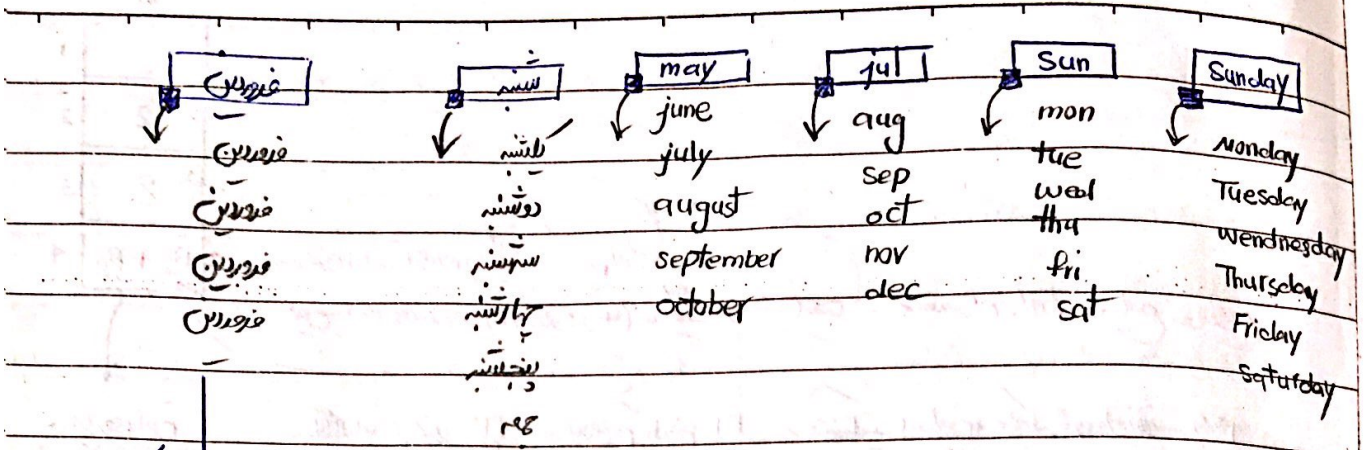 فروردین
فروردین
فروردین
فروردین
فروردین
شنبه
یکشنبه
دوشنبه
سه‌شنبه
چهارشنبه
پنجشنبه
جمعه
may
june
july
august
september
october
jul
aug
sep
oct
nov
dec
Sun
mon
tue
wed
thu
fri
sat
Sunday
Monday
Tuesday
Wendnesday
Thursday
Friday
Saturday